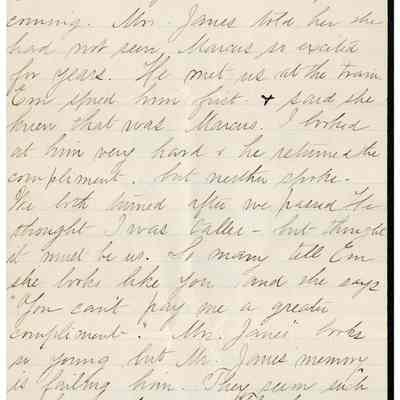 coming. Mrs. Janes told her she
had not seen Marcus so excited
for years. He met us at the train
Em spied him first & said she
knew that was Marcus. I looked
at him very hard & he returned the
compliment, but neither spoke.
We both turned after we passed He
thought I was Callie - but thought
it must be us. So many tell Em
she looks like you and she says
"You can't pay me a greater
compliment". Mrs. Janes looks
so young but Mr. Janes memory
is failing him. They seem such